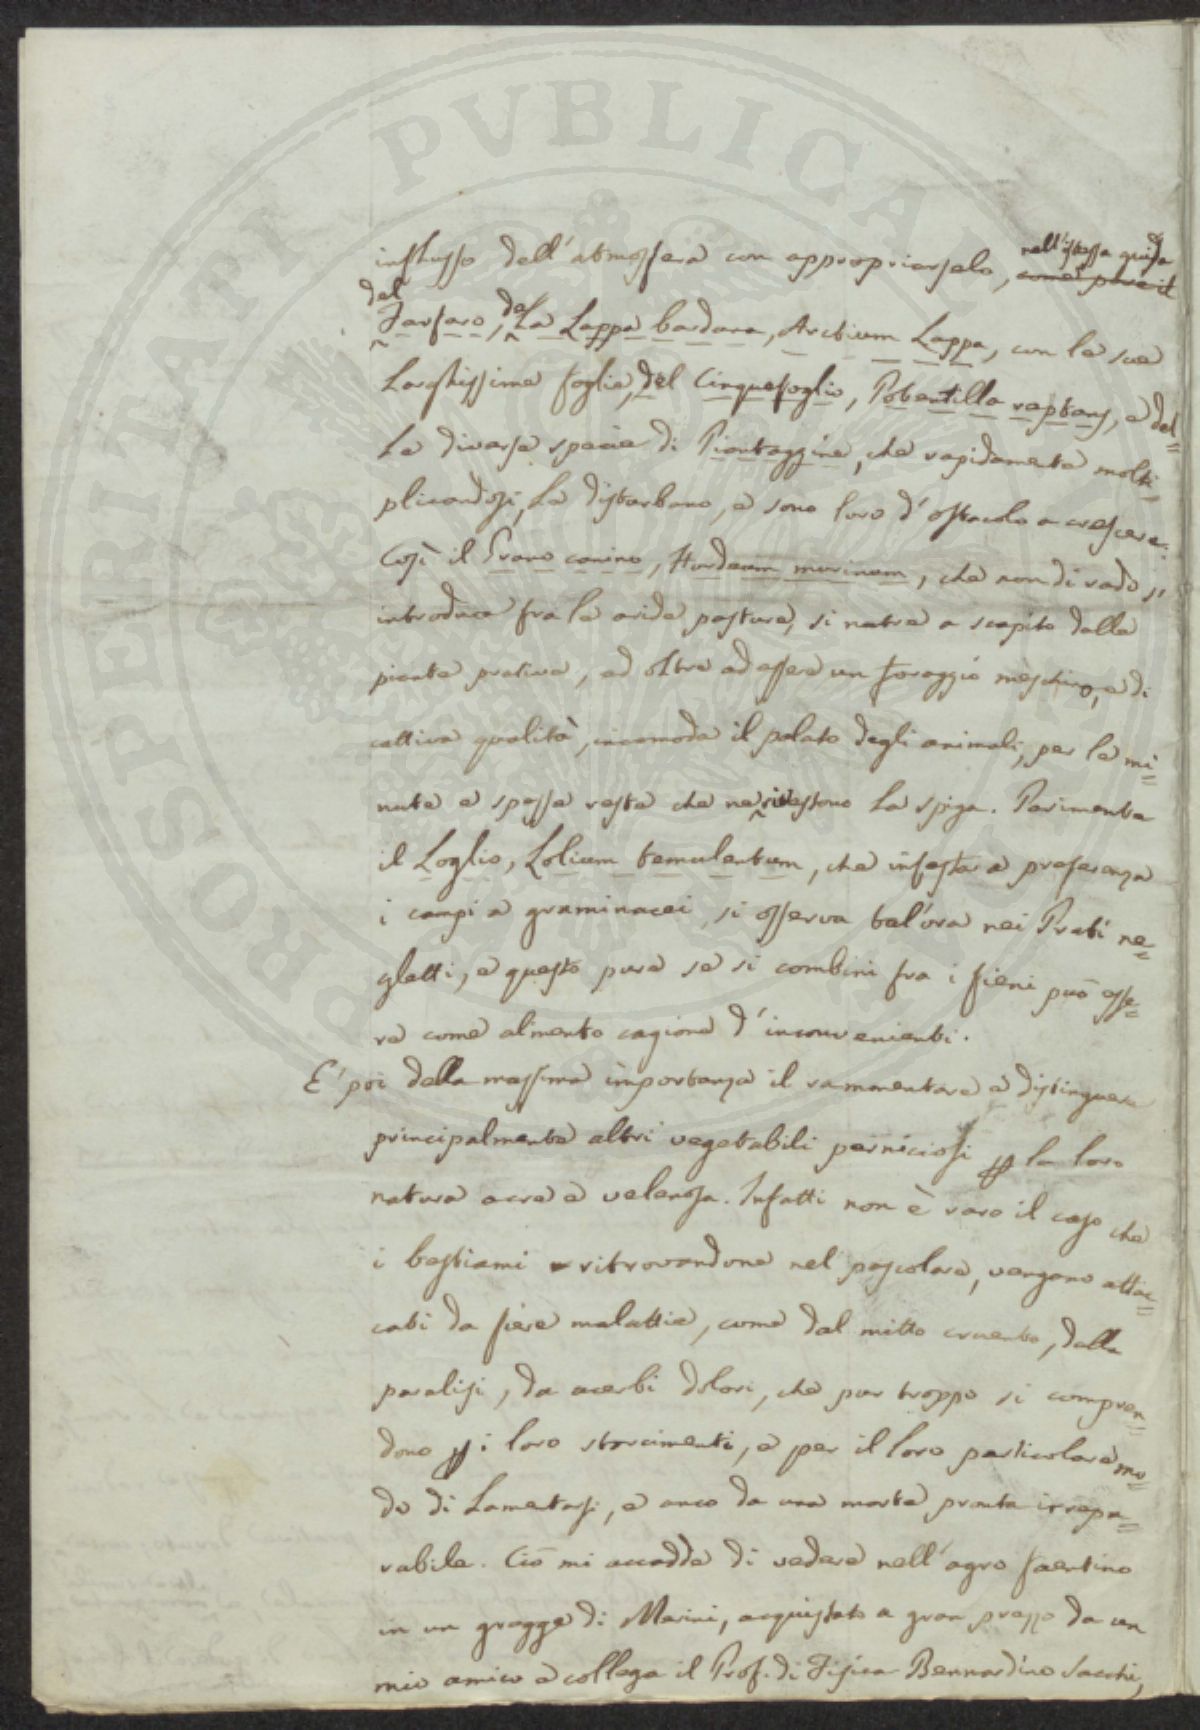 PROSPERITATI PVBLICAE AVGENDAE
nell'istessa guisa
influsso dell'atmosfera con appropriarselo, come pure il
del
Farfaro, della Lappa bardana, Arctium Lappa, con le sue
larghissime foglie, del Cinquefoglio, Potentilla reptans, e del=
le diverse specie di Piantaggine, che rapidamente molti=
plicandosi, la disturbano, e sono loro d'ostacolo a crescere.
Così il Grano canino, Hordeum murinum, che non di rado si
introduce fra le aride pasture, si nutre a scapito delle
piante prative, ed oltre ad essere un foraggio meschino, e di
cattiva qualità, incomoda il palato degli animali, per le mi=
nute e spesse reste che ne rivestono la spiga. Parimente
il Loglio, Lolium temulentum, che infesta a preferenza
i campi a graminacei, si osserva tal'ora nei Prati ne=
gletti, e questo pure se si combini fra i fieni può esse=
re come alimento cagione d'inconvenienti.
E' poi della massima importanza il rammentare e distinguere
principalmente altri vegetabili perniciosi p la loro
natura acre e velenosa. Infatti non è raro il caso che
i bestiami ritrovandone nel pascolare, vengano attac=
cati da fiere malattie, come dal mitto cruento, dalla
paralisi, da acerbi dolori, che pur troppo si compren=
dono p i loro storcimenti, e per il loro particolare mo=
do di lamentarsi, e anco da una morte pronta irrepa=
rabile. Ciò mi accadde di vedere nell'agro faentino
in un gregge di Merini, acquistato a gran prezzo da un
mio amico e collega il Prof. di Fisica Bernardino Sacchi,